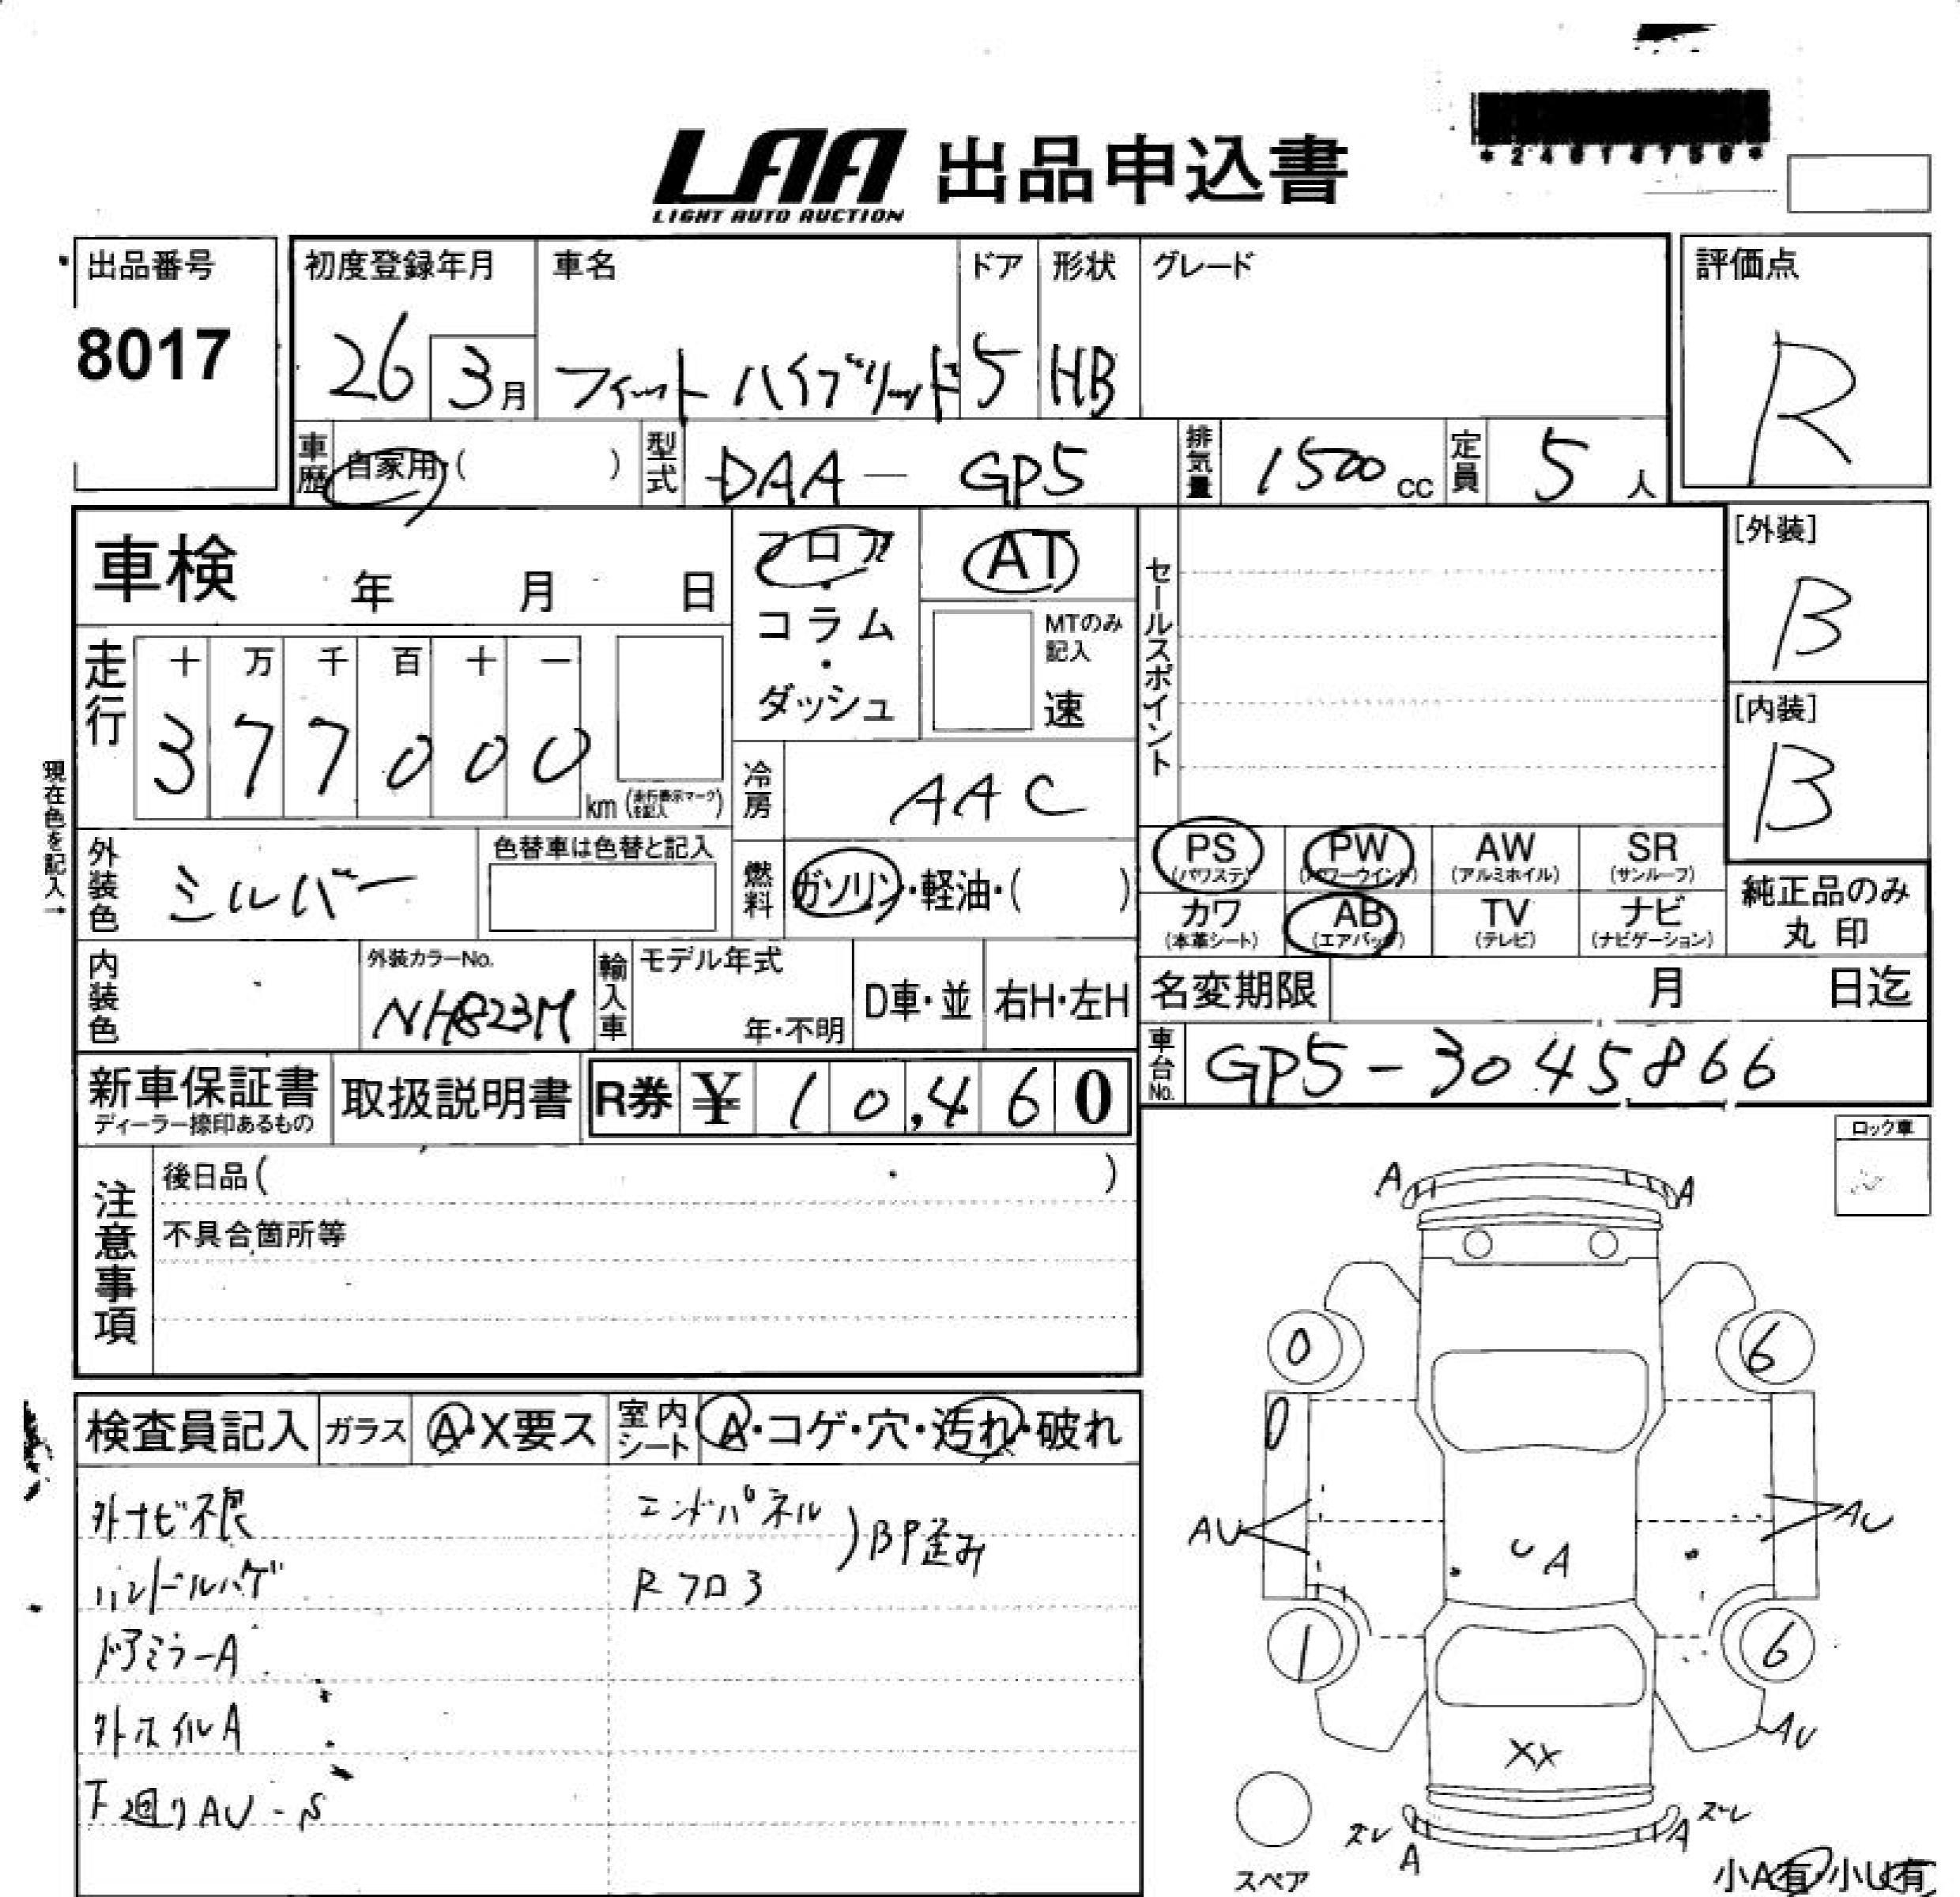 LAA 出品申込書
LIGHT AUTO AUCTION
出品番号
8017
初度登録年月 車名 ドア 形状 グレード 評価点
26 3月 フィット ハイブリッド 5 HB R
車歴 自家用・( ) 型式 DAA — GP5 排気量 1500 cc 定員 5 人
車検 年 月 日
フロア・コラム・ダッシュ
AT
MTのみ記入
速
セールスポイント
[外装]
B
[内装]
B
走行 十 万 千 百 十 一
3 7 7 0 0 0 km (走行表示マークを記入)
現在色を記入→
冷房 AAC
外装色 シルバー
色替車は色替と記入
燃料 ガソリン・軽油・( )
PS (パワステ) PW (パワーウインド) AW (アルミホイル) SR (サンルーフ)
カワ (本革シート) AB (エアバッグ) TV (テレビ) ナビ (ナビゲーション)
純正品のみ
丸印
内装色
外装カラーNo.
NH823M
輸入車 モデル年式
年・不明
D車・並 右H・左H
名変期限 月 日迄
車台No. GP5-3045866
新車保証書
ディーラー捺印あるもの
取扱説明書
R券 ¥ 10,460
ロック車
注意事項
後日品( )
不具合箇所等
検査員記入 ガラス A・X要ス 室内シート A・コゲ・穴・汚れ・破れ
外ナビ不良
ハンドルハゲ
ドアミラーA
外ホイルA
下廻りAU-S
エンドパネル
Rフロ3
)BP歪み
A A
0 6
AU UA AU
1 6
AU
XX
ズレ ズレ
A A
スペア
小A有 小U有